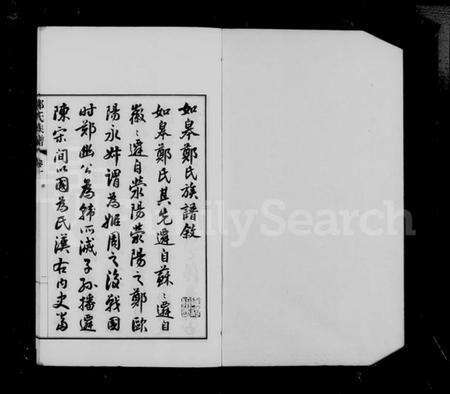 如皋鄭氏族譜敍
如皋鄭氏其先遷自蘇〻遷自
徽〻遷自滎陽滎陽之鄭歐
陽永叔謂為姬周之後戰國
時鄭幽公為韓所滅子孫播遷
陳宋間以國為氏漢右內史當
鄭氏族譜 卷一
FamilySearch